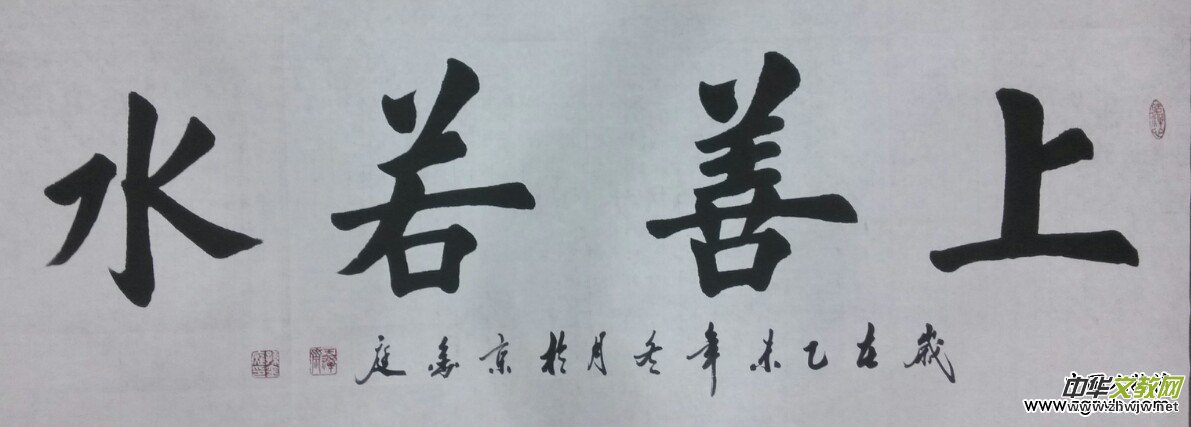 上善若水
歲在乙未年冬月於京庭
中华文教网
www.zhwjw.net